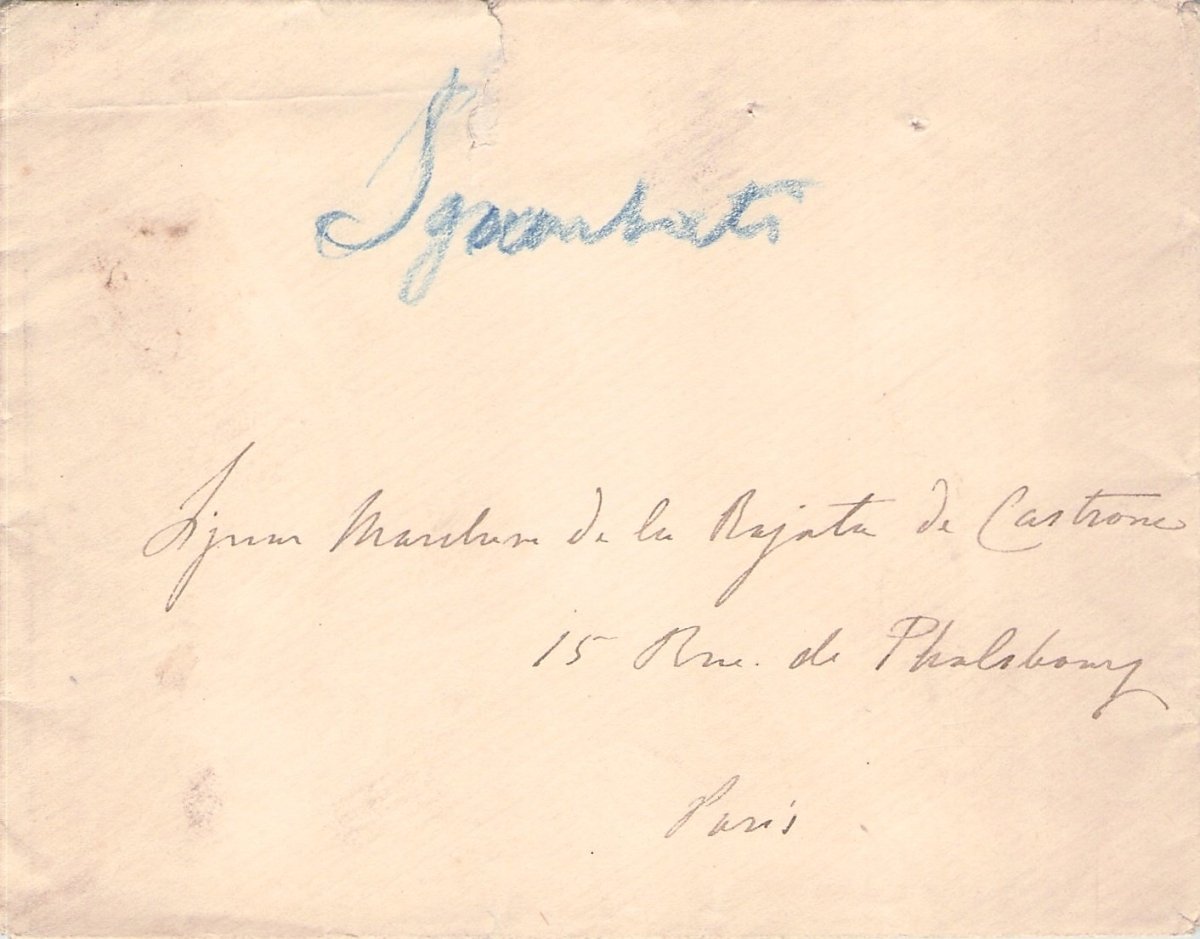 Sgambati
Signor Marchese de la Rajata de Castrone
15 Rue de Phalsbourg
Paris